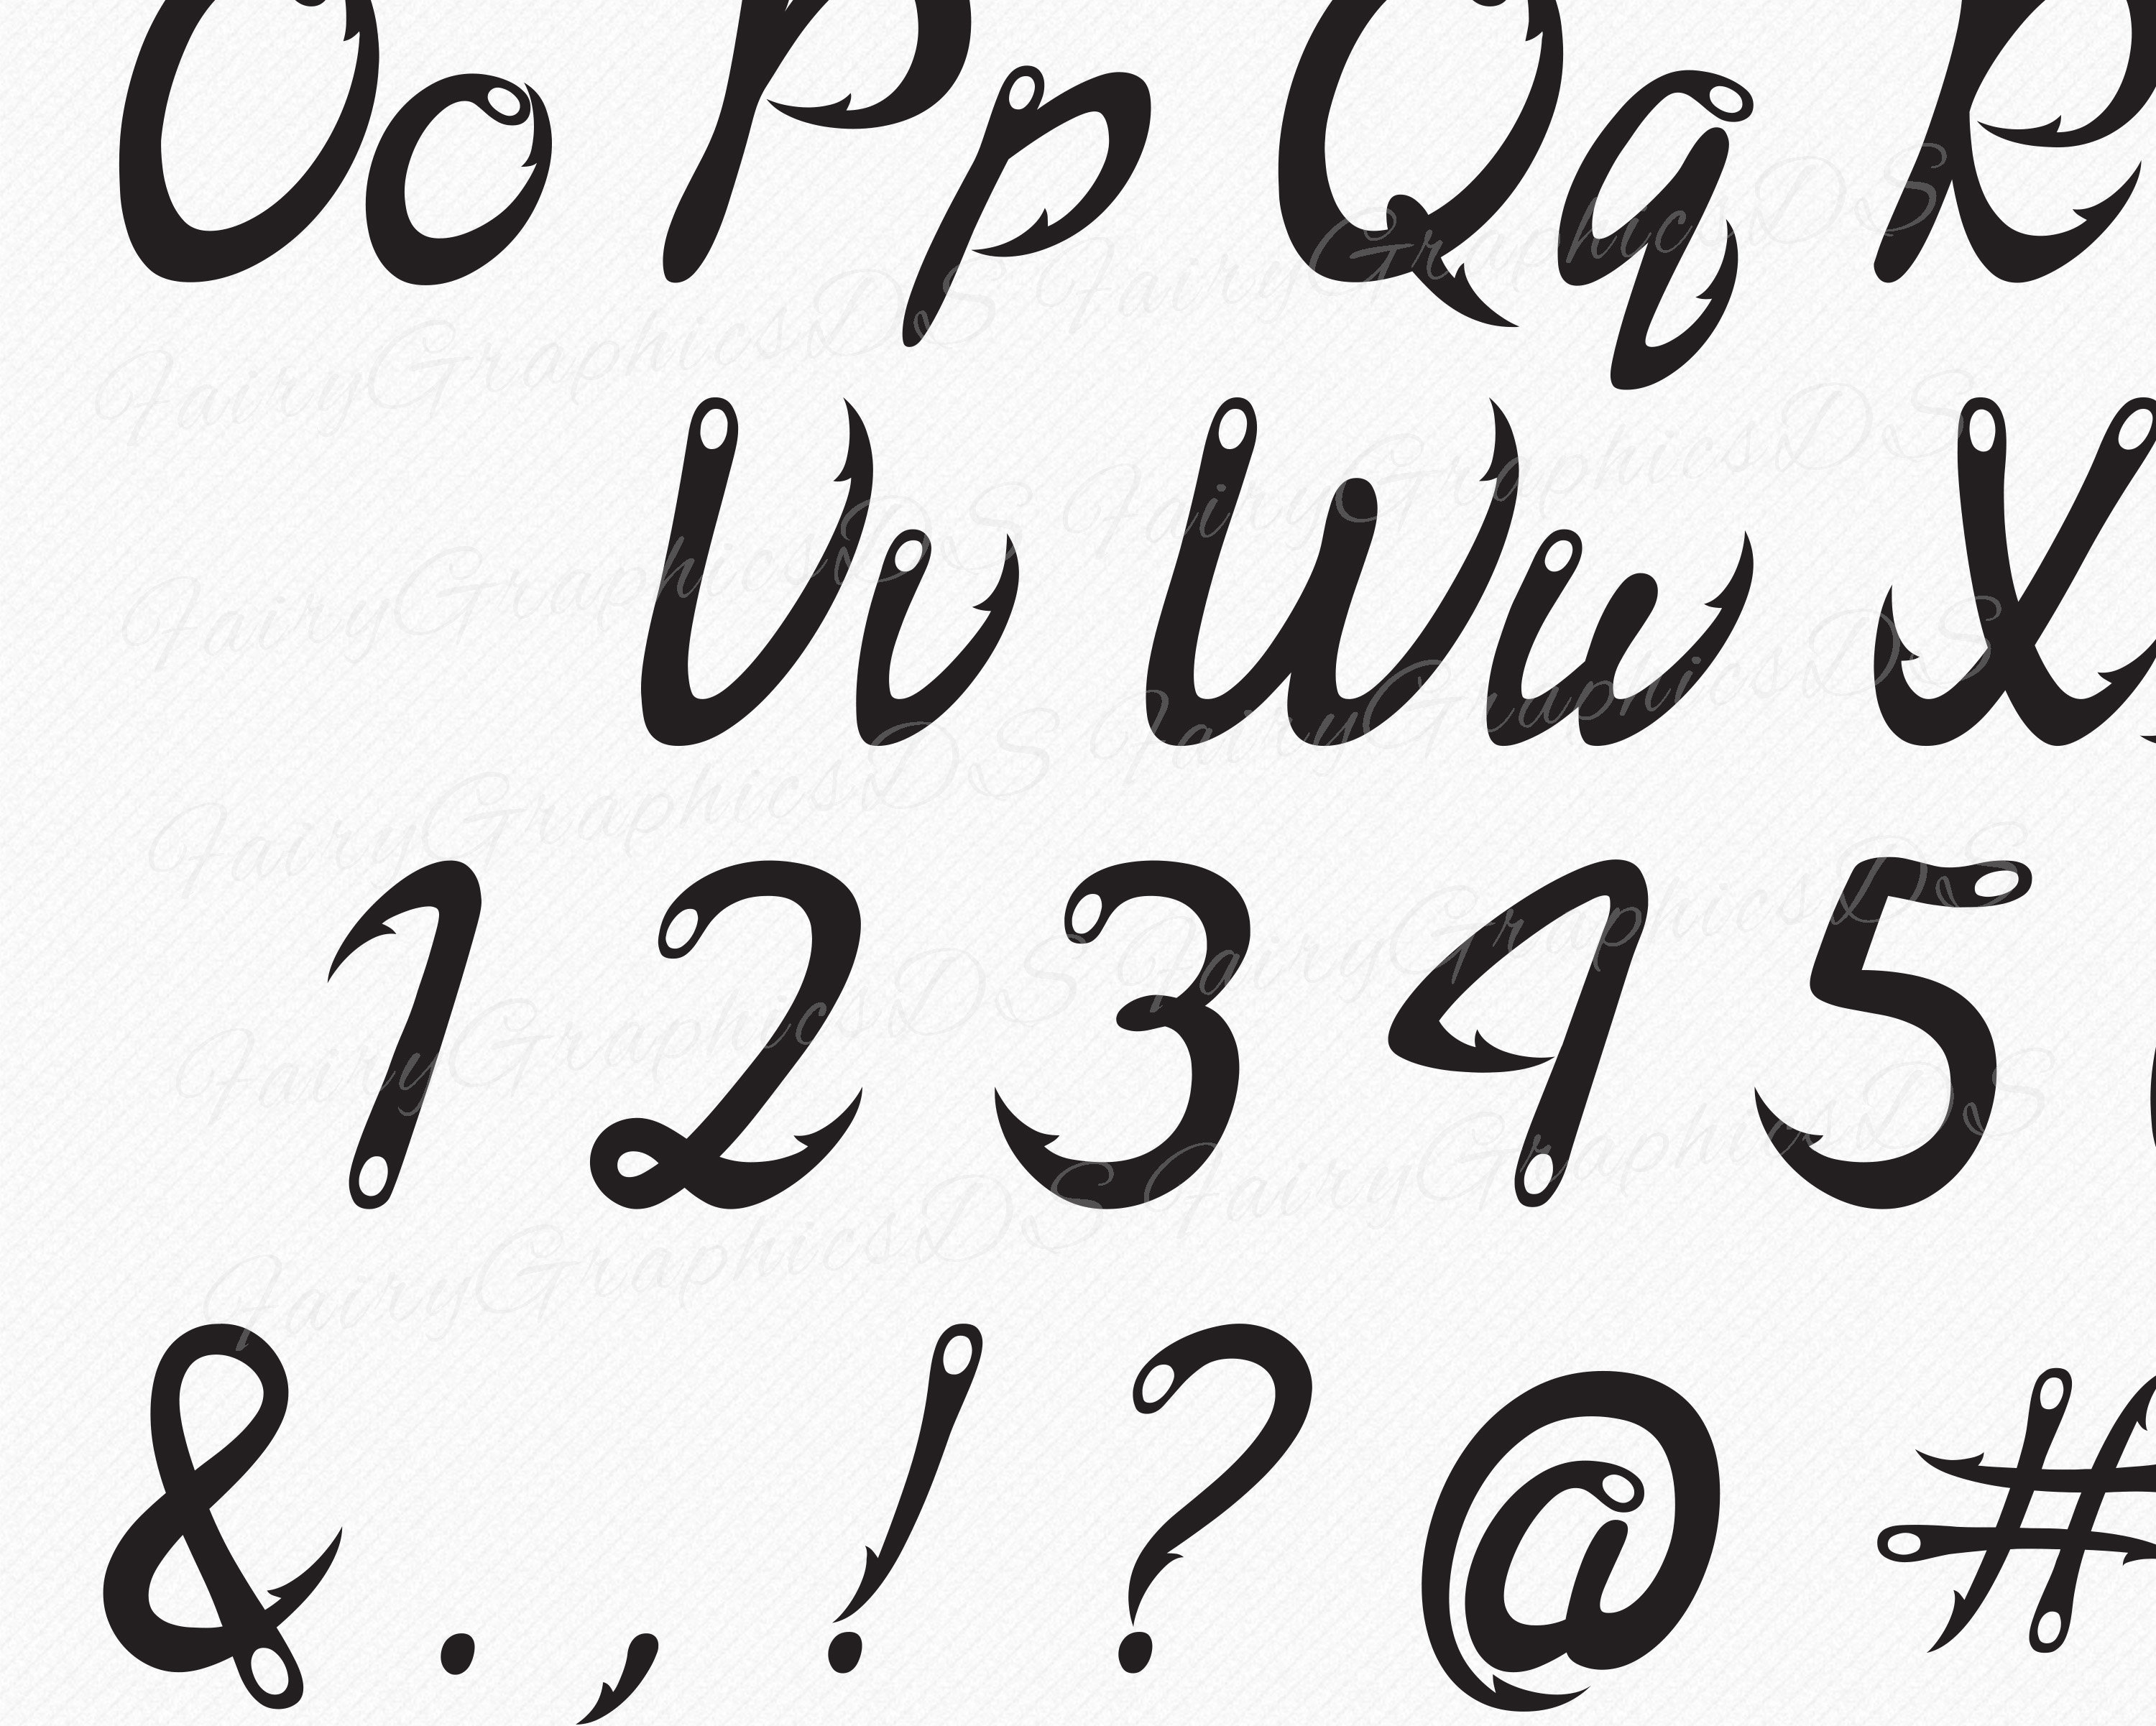 Oo Pp Qq R
Vv Ww X
1 2 3 4 5
& . , ! ? @ #
FairyGraphicsDS FairyGraphicsDS
FairyGraphicsDS FairyGraphicsDS
FairyGraphicsDS FairyGraphicsDS
FairyGraphicsDS FairyGraphicsDS
FairyGraphicsDS FairyGraphicsDS